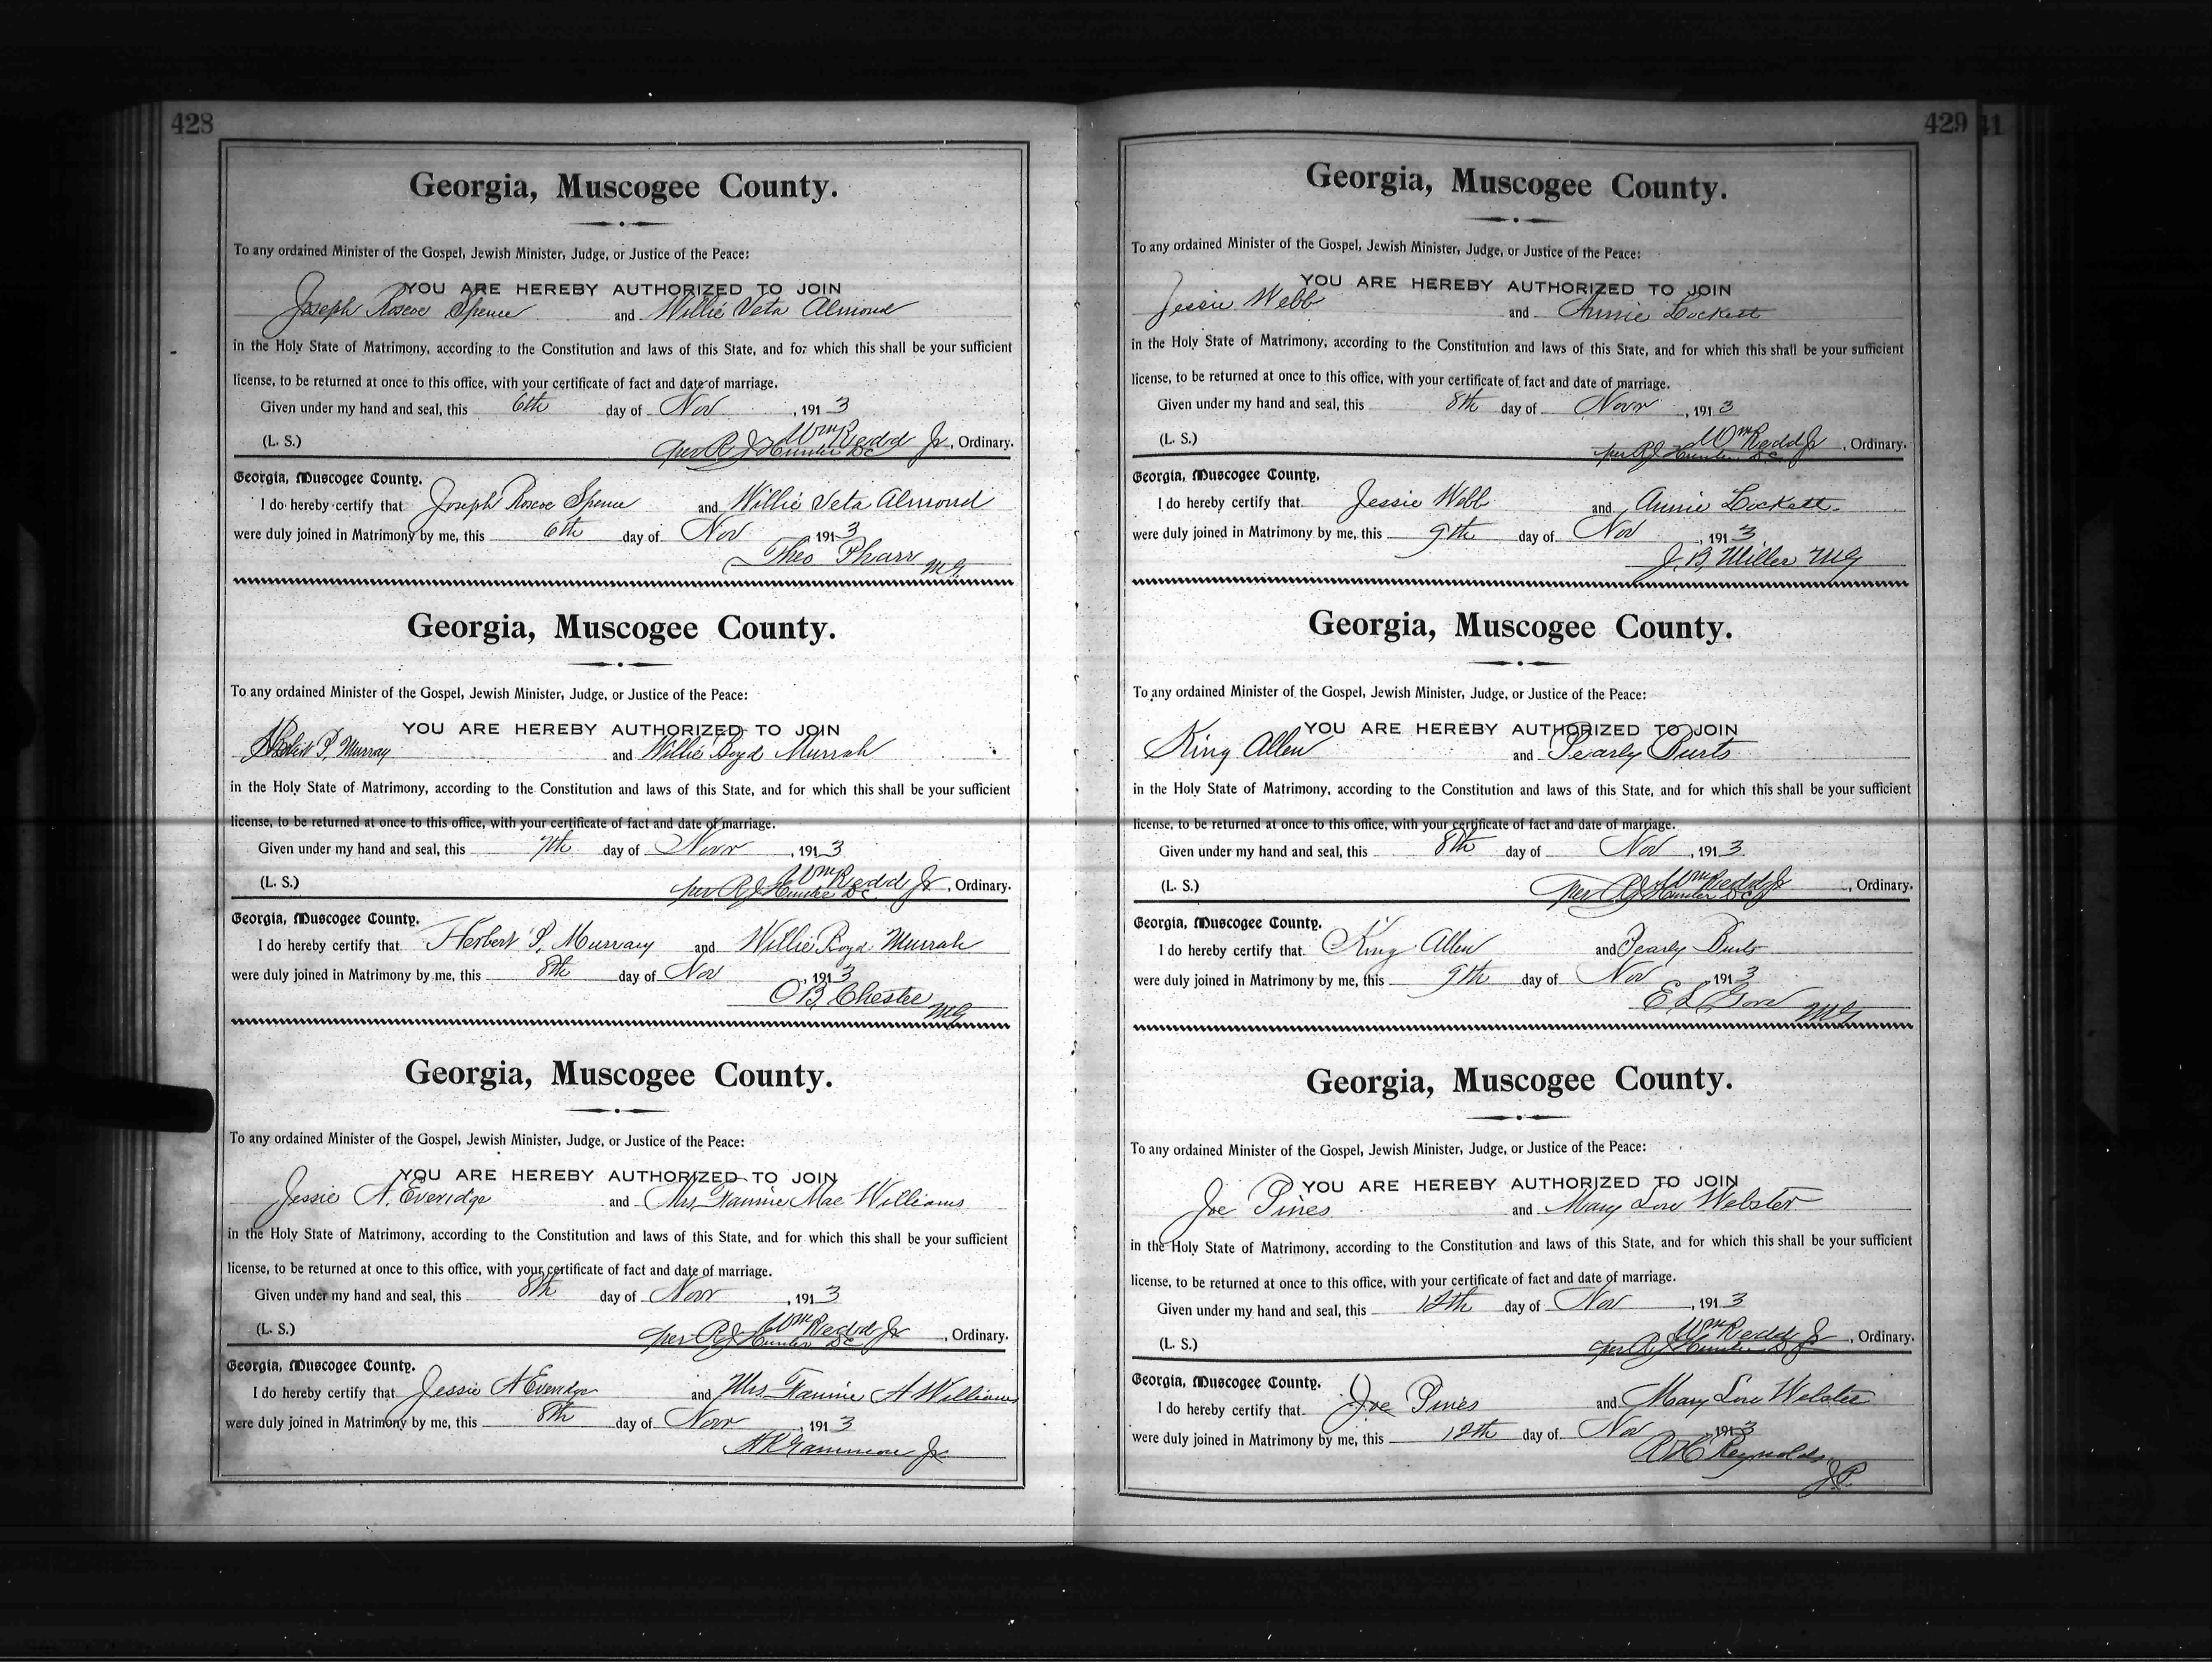 428
Georgia, Muscogee County.
To any ordained Minister of the Gospel, Jewish Minister, Judge, or Justice of the Peace:
YOU ARE HEREBY AUTHORIZED TO JOIN
Joseph Roscoe Spence and Willie Veta Almond
in the Holy State of Matrimony, according to the Constitution and laws of this State, and for which this shall be your sufficient
license, to be returned at once to this office, with your certificate of fact and date of marriage.
Given under my hand and seal, this 6th day of Nov, 1913
(L. S.) Wm Redd Jr, Ordinary.
per R J Hunter D.C.
Georgia, Muscogee County.
I do hereby certify that Joseph Roscoe Spence and Willie Veta Almond
were duly joined in Matrimony by me, this 6th day of Nov, 1913
Theo Pharr M.G.
Georgia, Muscogee County.
To any ordained Minister of the Gospel, Jewish Minister, Judge, or Justice of the Peace:
YOU ARE HEREBY AUTHORIZED TO JOIN
P. Murray and Willie Boyd Murrah
in the Holy State of Matrimony, according to the Constitution and laws of this State, and for which this shall be your sufficient
license, to be returned at once to this office, with your certificate of fact and date of marriage.
Given under my hand and seal, this 7th day of Novr, 1913
(L. S.) Wm Redd Jr, Ordinary.
per R J Hunter D.C.
Georgia, Muscogee County.
I do hereby certify that Herbert P. Murray and Willie Boyd Murrah
were duly joined in Matrimony by me, this 8th day of Nov, 1913
O B Chester MG
Georgia, Muscogee County.
To any ordained Minister of the Gospel, Jewish Minister, Judge, or Justice of the Peace:
YOU ARE HEREBY AUTHORIZED TO JOIN
Jessie A. Everidge and Mrs. Fannie Mae Williams
in the Holy State of Matrimony, according to the Constitution and laws of this State, and for which this shall be your sufficient
license, to be returned at once to this office, with your certificate of fact and date of marriage.
Given under my hand and seal, this 8th day of Novr, 1913
(L. S.) Wm Redd Jr, Ordinary.
per R J Hunter DC
Georgia, Muscogee County.
I do hereby certify that Jessie A Everidge and Mrs. Fannie A Williams
were duly joined in Matrimony by me, this 8th day of Novr, 1913
Gammon Jr
429
41
Georgia, Muscogee County.
To any ordained Minister of the Gospel, Jewish Minister, Judge, or Justice of the Peace:
YOU ARE HEREBY AUTHORIZED TO JOIN
Jessie Webb and Annie Lockett
in the Holy State of Matrimony, according to the Constitution and laws of this State, and for which this shall be your sufficient
license, to be returned at once to this office, with your certificate of fact and date of marriage.
Given under my hand and seal, this 8th day of Novr, 1913
(L. S.) Wm Redd Jr, Ordinary.
per R J Hunter D.C.
Georgia, Muscogee County.
I do hereby certify that Jessie Webb and Annie Lockett
were duly joined in Matrimony by me, this 9th day of Nov, 1913
J. B. Miller MG
Georgia, Muscogee County.
To any ordained Minister of the Gospel, Jewish Minister, Judge, or Justice of the Peace:
YOU ARE HEREBY AUTHORIZED TO JOIN
King Allen and Pearly Burts
in the Holy State of Matrimony, according to the Constitution and laws of this State, and for which this shall be your sufficient
license, to be returned at once to this office, with your certificate of fact and date of marriage.
Given under my hand and seal, this 8th day of Nov, 1913.
(L. S.) Wm Redd Jr, Ordinary.
per R J Hunter DC
Georgia, Muscogee County.
I do hereby certify that King Allen and Pearly Burts
were duly joined in Matrimony by me, this 9th day of Nov 1913
E L MG
Georgia, Muscogee County.
To any ordained Minister of the Gospel, Jewish Minister, Judge, or Justice of the Peace:
YOU ARE HEREBY AUTHORIZED TO JOIN
Joe Pines and Mary Lou Webster
in the Holy State of Matrimony, according to the Constitution and laws of this State, and for which this shall be your sufficient
license, to be returned at once to this office, with your certificate of fact and date of marriage.
Given under my hand and seal, this 12th day of Nov, 1913
(L. S.) Wm Redd Jr, Ordinary.
per R J Hunter
Georgia, Muscogee County.
I do hereby certify that Joe Pines and Mary Lou Webster
were duly joined in Matrimony by me, this 12th day of Nov 1913
R H Reynolds
J.P.